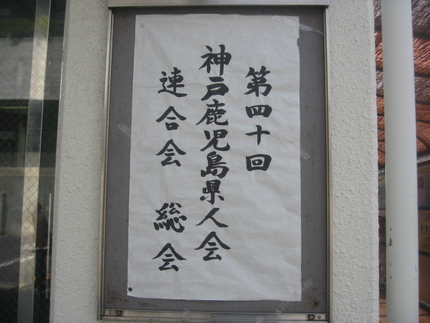 第四十回
神戸鹿児島県人会
連合会 総会